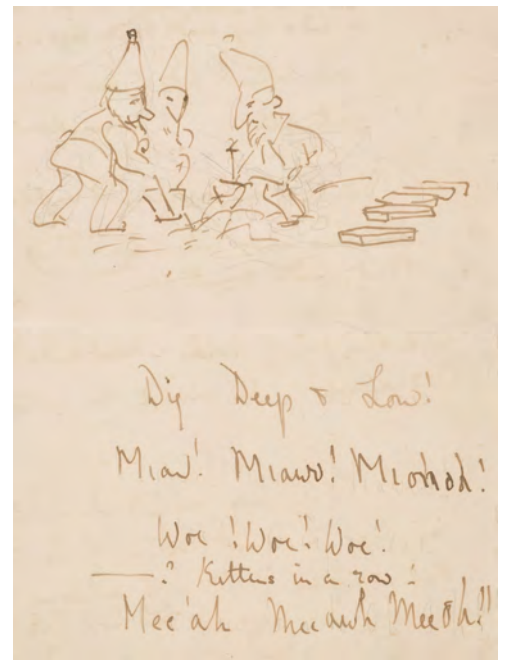 Dig Deep & Low!
Miaw! Miaww! Mioºoh!
Woe! Woe! Woe!
———? Kittens in a row!
Mee'ah Meeawh Meeoh!!